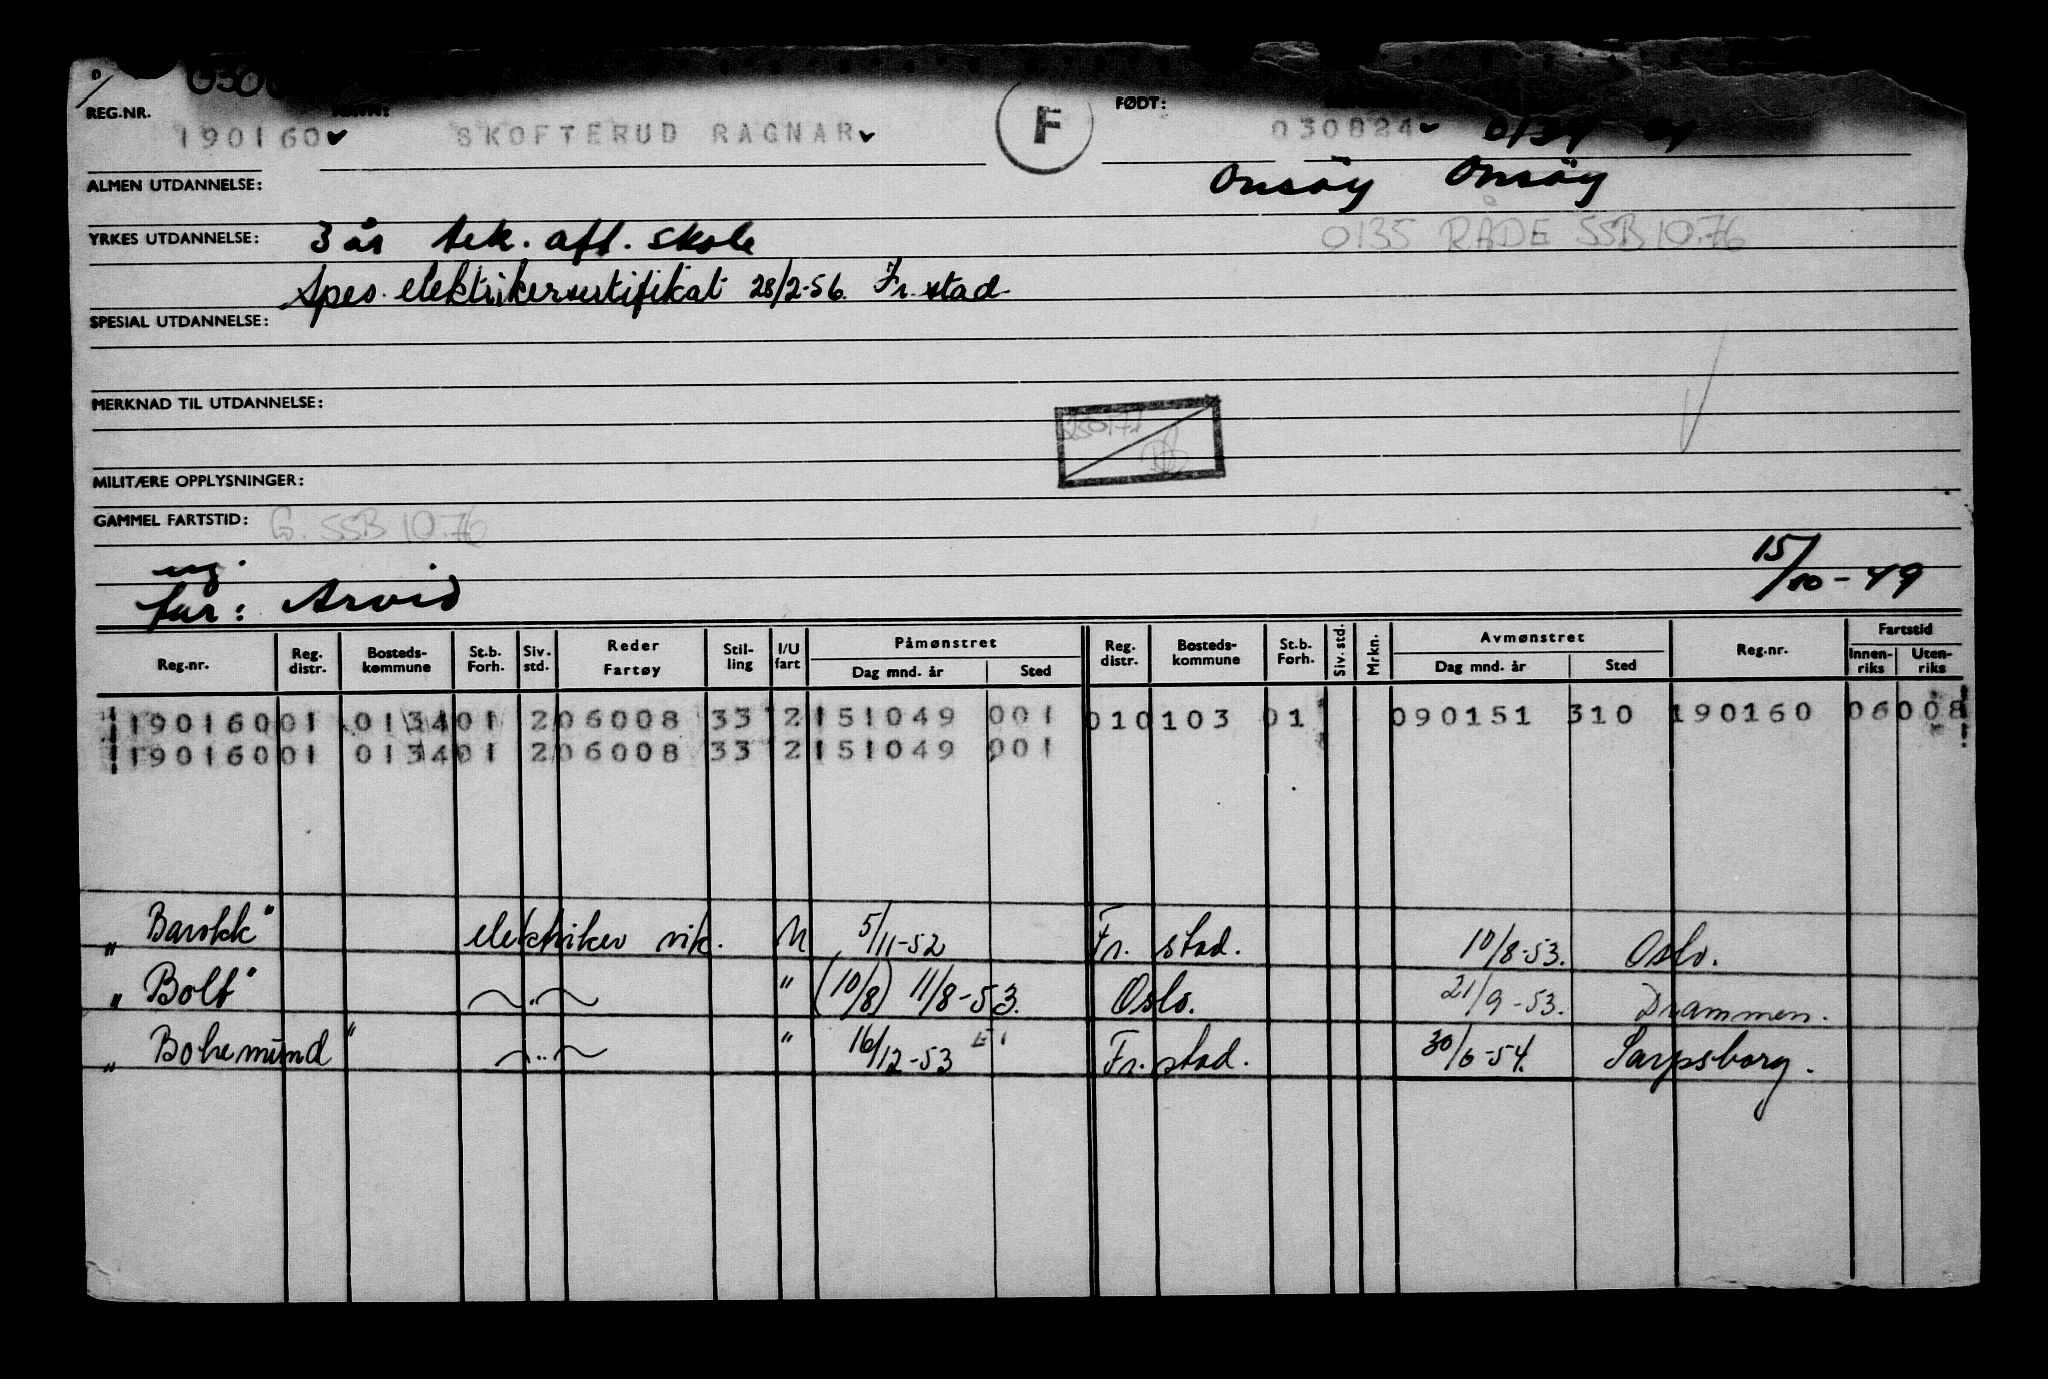 REG.NR. NAVN: F FØDT:
190160 SKOFTERUD RAGNAR 030824
ALMEN UTDANNELSE: Onsøy Onsøy
YRKES UTDANNELSE: 3 år tek. aft. skole 0135 RÅDE SSB 10.76
Spes. elektrikersertifikat 28/2-56. Fr.stad.
SPESIAL UTDANNELSE:
MERKNAD TIL UTDANNELSE:
MILITÆRE OPPLYSNINGER:
GAMMEL FARTSTID: G. SSB 10.76
ug. 15/10-49
far: Arvid
Reg.nr. Reg. distr. Bosteds-kommune St.b. Forh. Siv. std. Reder Fartøy Stil-ling I/U fart Påmønstret Dag mnd. år Sted Reg. distr. Bosteds-kommune St.b. Forh. Siv. std. Mrkn. Avmønstret Dag mnd. år Sted Reg.nr. Fartstid Innen-riks Uten-riks
190160 01 0134 01 2 06008 33 2 151049 001 01 0103 01 090151 310 190160 06008
190160 01 0134 01 2 06008 33 2 151049 001
"Barokk" elektriker vik. U 5/11-52 Fr.stad. 10/8-53. Oslo.
"Bolt" ~"~ " (10/8) 11/8-53. Oslo. 21/9-53. Drammen.
"Bohemund" ~"~ " 16/12-53 Fr.stad. 30/6-54. Sarpsborg.